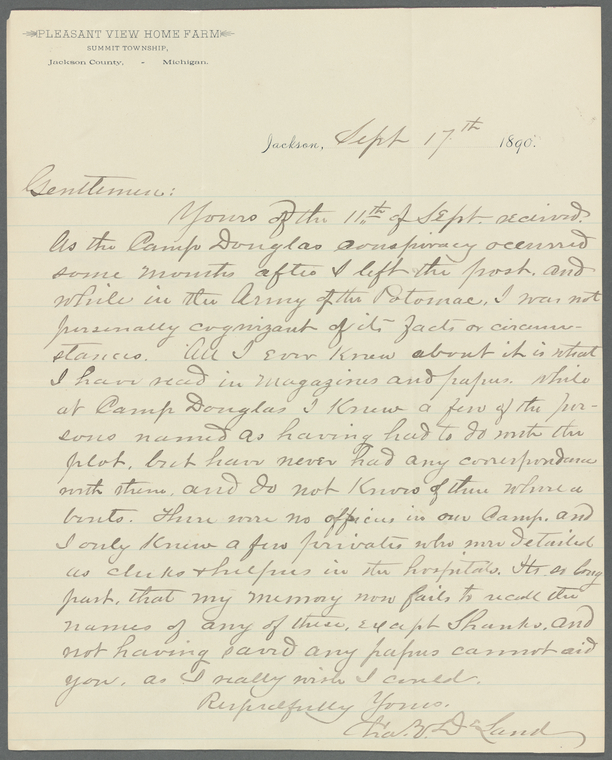 PLEASANT VIEW HOME FARM
SUMMIT TOWNSHIP,
Jackson County, - Michigan.
Jackson, Sept 17th 1890.
Gentlemen:
Yours of the 11th of Sept. received.
As the Camp Douglas conspiracy occurred
some months after I left the post, and
while in the Army of the Potomac, I was not
personally cognizant of its facts or circum-
stances. All I ever knew about it is what
I have read in magazines and papers. While
at Camp Douglas I knew a few of the per-
sons named as having had to do with the
plot, but have never had any correspondence
with them, and do not know of their wherea
bouts. There were no officers in our Camp, and
I only knew a few privates who were detailed
as clerks & helpers in the hospitals. Its so long
past, that my memory now fails to recall the
names of any of these, except Shanks, and
not having saved any papers cannot aid
you, as I really wish I could.
Respectfully Yours.
Chas. V. DeLand